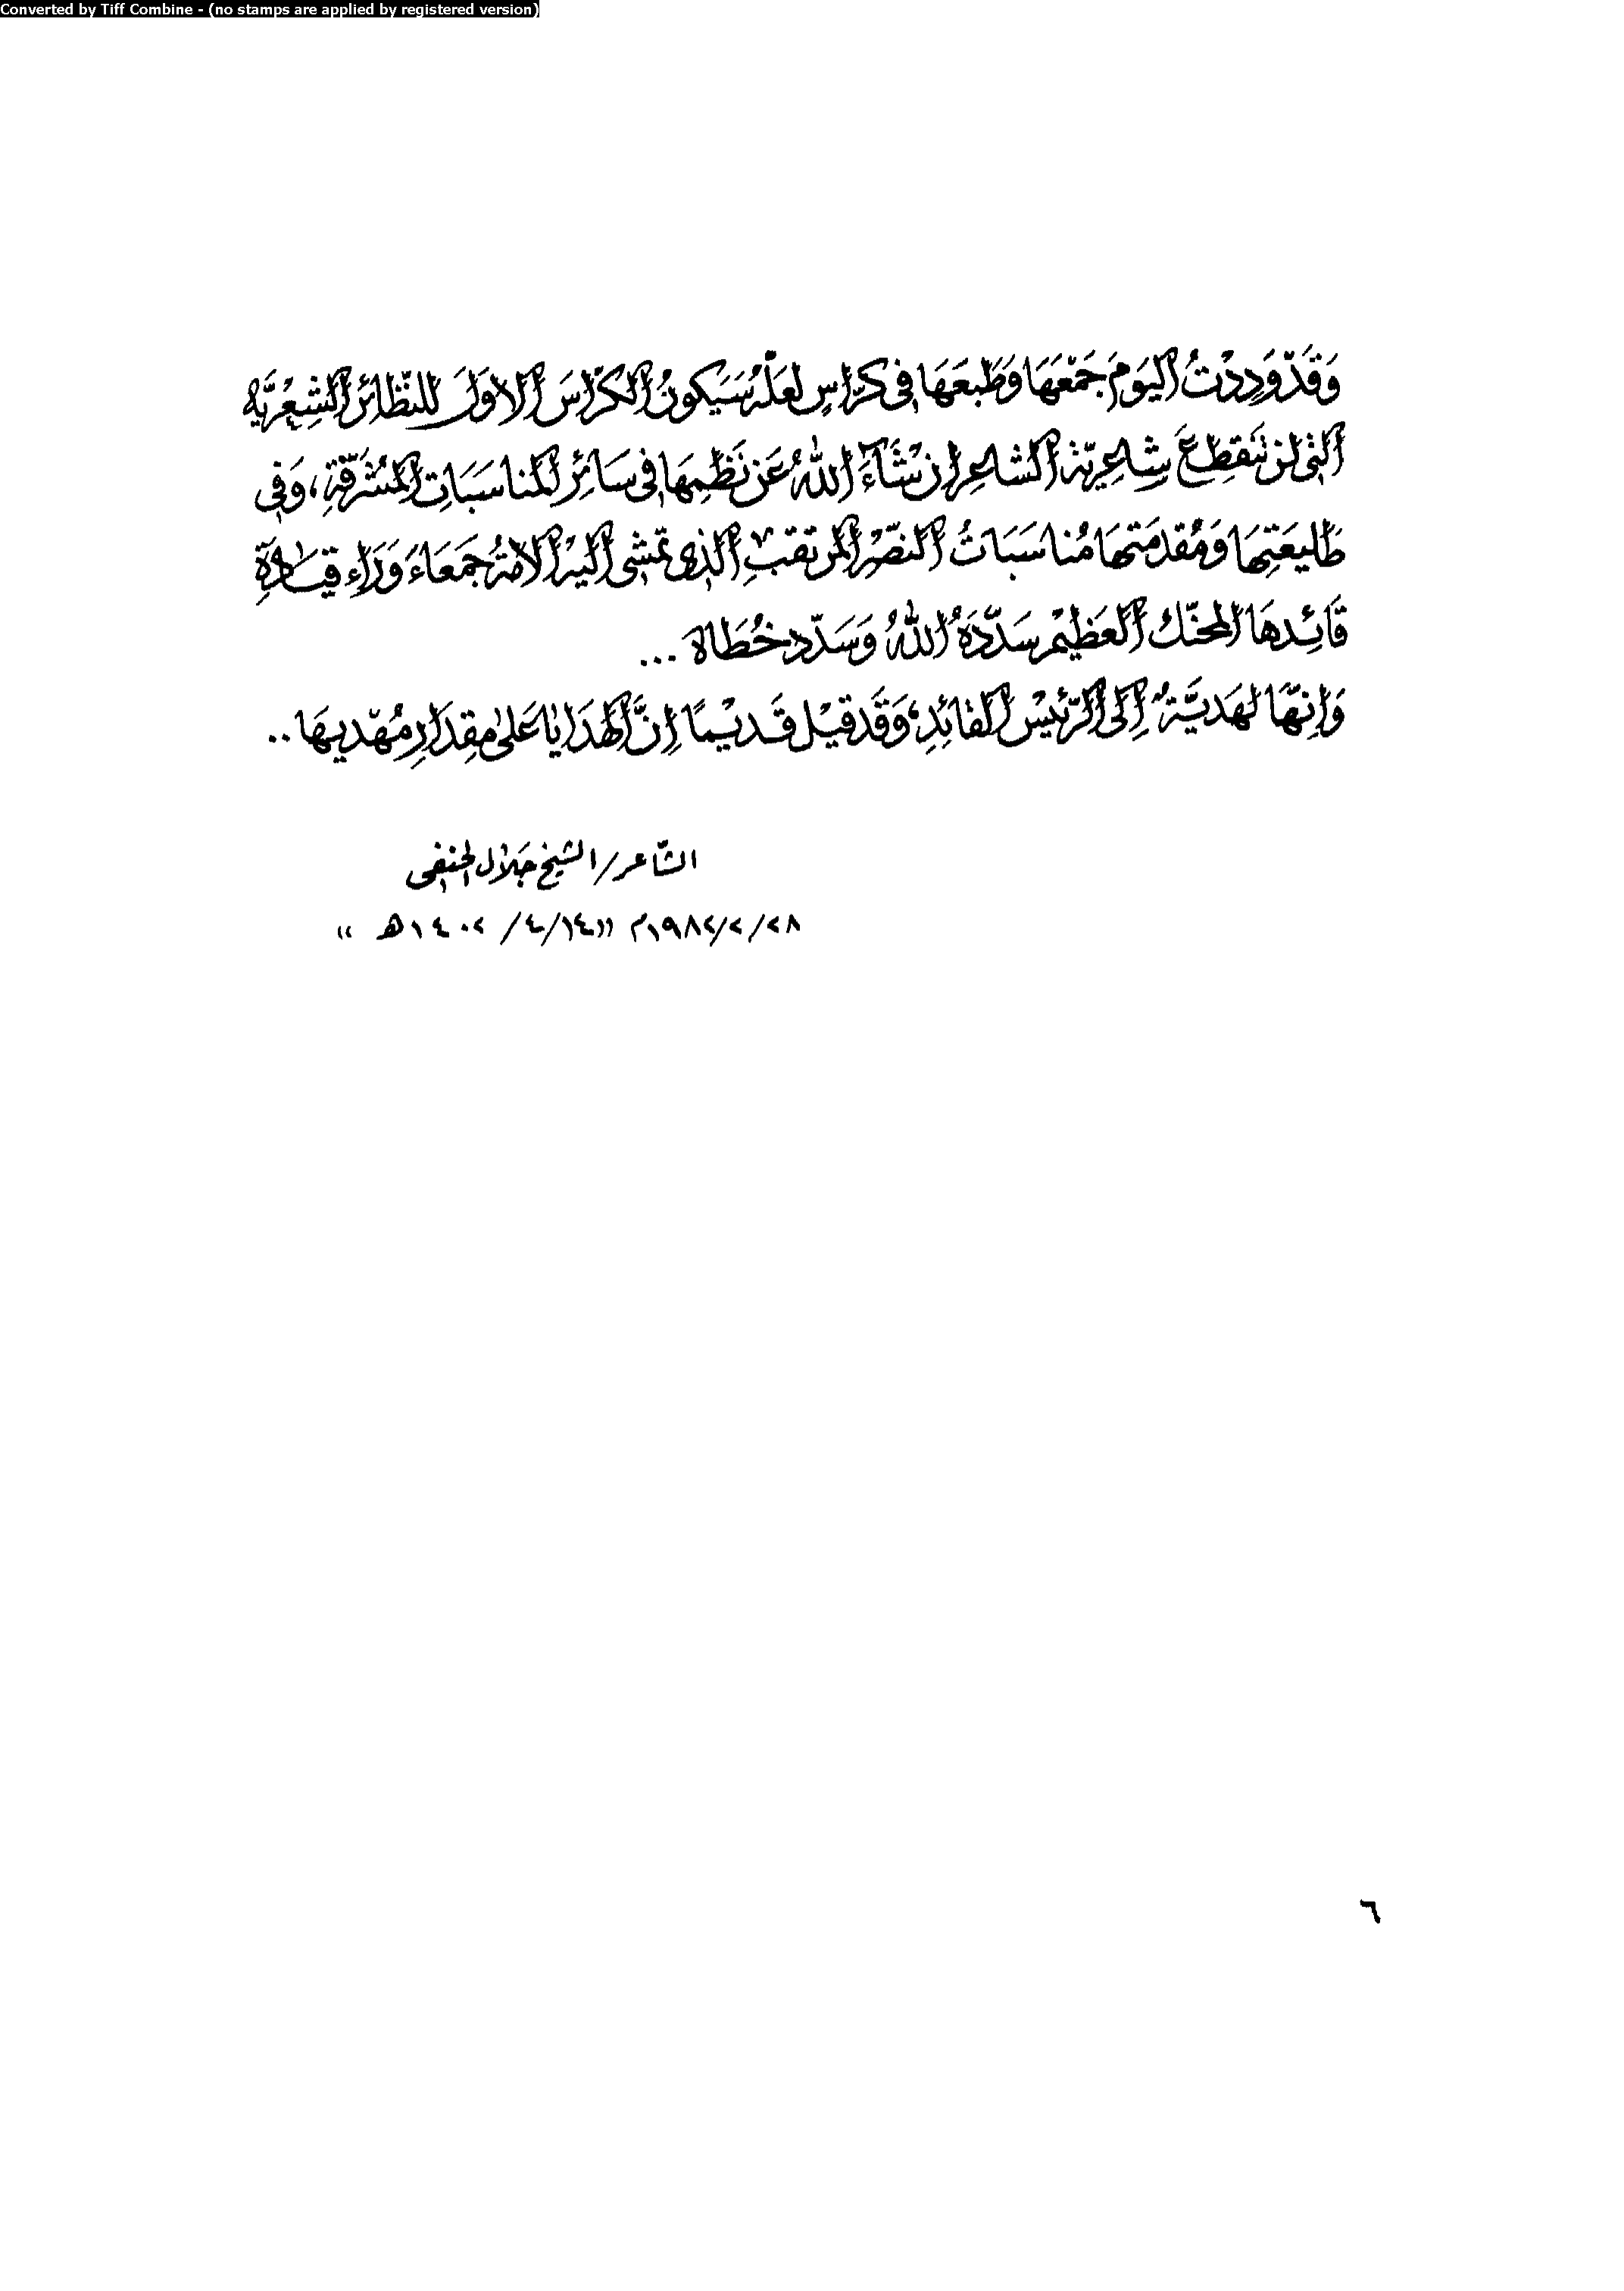 Converted by Tiff Combine - (no stamps are applied by registered version)
وَقَدْ وَدِدْتُ اليَومَ جَمْعَهَا وَطَبعَهَا فِي كرّاسٍ لعَلّهُ سَيَكونُ الكرّاسَ الاوَلَ للنظائر الشِعْريَّه
التي لن تنقطِعَ شاعِريّة الشاعِر ان شَآءَ اللهُ عَن نَظمِهَا في سَائِر المناسَبَاتِ المشرّقةِ، وَفي
طَليعَتِهَا وَمُقدمَتهَا مُناسَبَاتُ النصْر المرتقبِ الذي تمشي اليهِ الامّةُ جَمَعَاءَ وَرَاء قيَادَةِ
قَائِدهَا المحنّك العَظيْم سَدّدَهُ اللهُ وَسَدّد خُطَاه ...
وَإنهَّا لهَديَّةٌ إلى الرّئيْس القائدِ، وَقَد قيْل قَديْمًا إنَّ الهَدَايا عَلىٰ مِقدَارِ مُهْديهَا ..
الشّاعر/ الشيخ جَلال الحنفي
٢٨/٢/١٩٨٢م «١٤/٤/ ١٤٠٢هـ »
٦